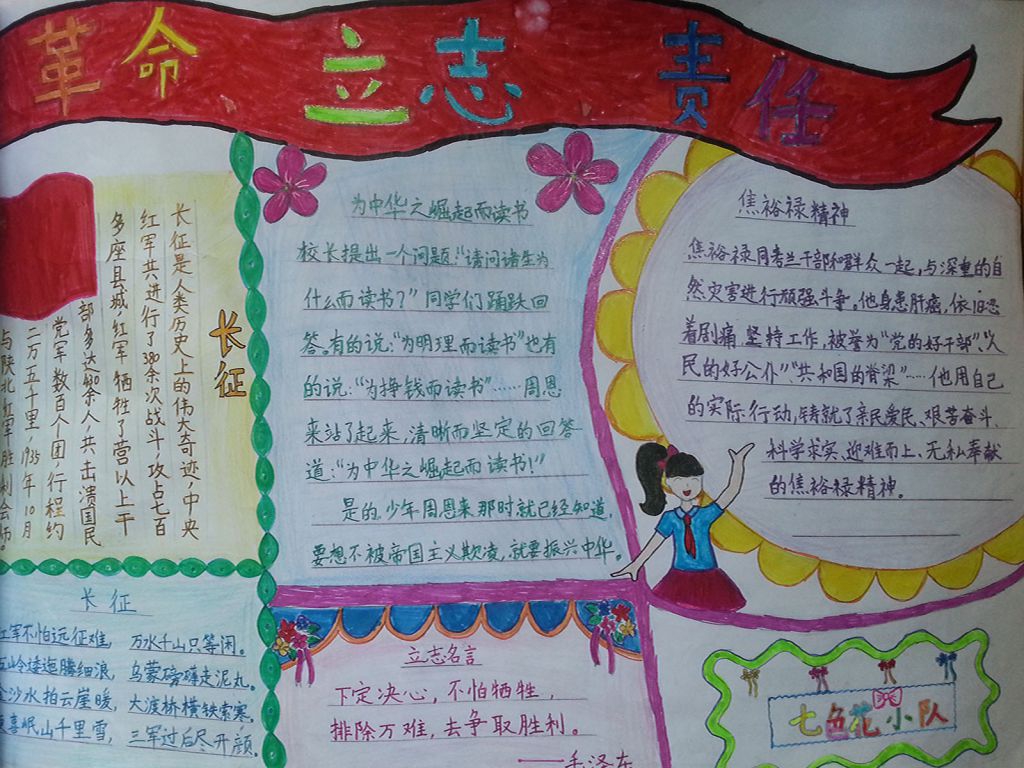 革命 立志 责任
长征
长征是人类历史上的伟大奇迹,中央
红军共进行了380余次战斗,攻占七百
多座县城,红军牺牲了营以上干
部多达430余人,共击溃国民
党军数百个团,行程约
二万五千里,1935年10月
与陕北红军胜利会师。
长征
军不怕远征难,万水千山只等闲。
岭逶迤腾细浪,乌蒙磅礴走泥丸。
沙水拍云崖暖,大渡桥横铁索寒。
喜岷山千里雪,三军过后尽开颜。
为中华之崛起而读书
校长提出一个问题:“请问诸生为
什么而读书?”同学们踊跃回
答。有的说:“为明理而读书”也有
的说:“为挣钱而读书”……周恩
来站了起来,清晰而坚定的回答
道:“为中华之崛起而读书!”
是的,少年周恩来那时就已经知道,
要想不被帝国主义欺凌,就要振兴中华。
立志名言
下定决心,不怕牺牲,
排除万难,去争取胜利。
——毛泽东
焦裕禄精神
焦裕禄同考兰干部和群众一起,与深重的自
然灾害进行顽强斗争。他身患肝癌,依旧忍
着剧痛,坚持工作,被誉为“党的好干部”、“人
民的好公仆”、“共和国的脊梁”……他用自己
的实际行动,铸就了亲民爱民、艰苦奋斗、
科学求实、迎难而上、无私奉献
的焦裕禄精神。
七色花小队